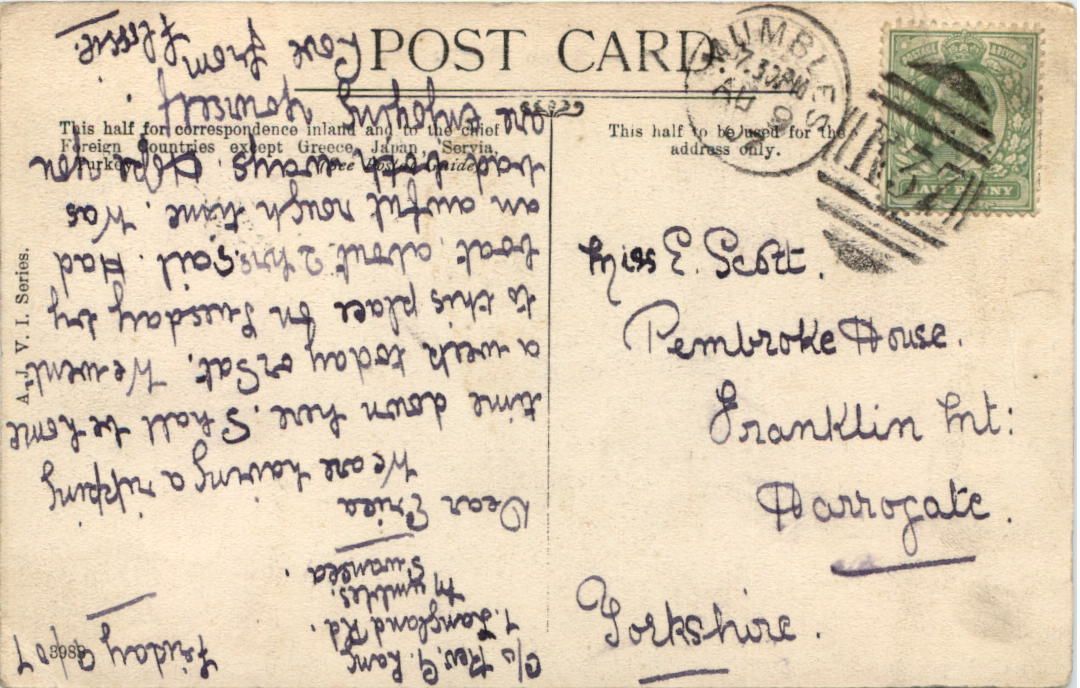 POST CARD
MUMBLES
7.30PM
AU 9
07
HALF PENNY
This half for correspondence inland and to the chief
Foreign Countries except Greece, Japan, Servia,
Turkey
See Postal Guide
This half to be used for the
address only.
A.J. V. I. Series.
Miss E. Scott.
Pembroke House.
Franklin Mt:
Harrogate.
Yorkshire.
3988
c/o Rev. G. Lang
7. Langland Rd.
Mumbles.
Swansea.
Friday 9 07
Dear Erica
We are having a ripping
time down here. Shall be home
a week today or Sat. We went
to this place on Tuesday by
boat about 2 hrs. sail. Had
an awful rough time. Was
bad both ways. Hope you
are enjoying yourself
love from
Flossie.